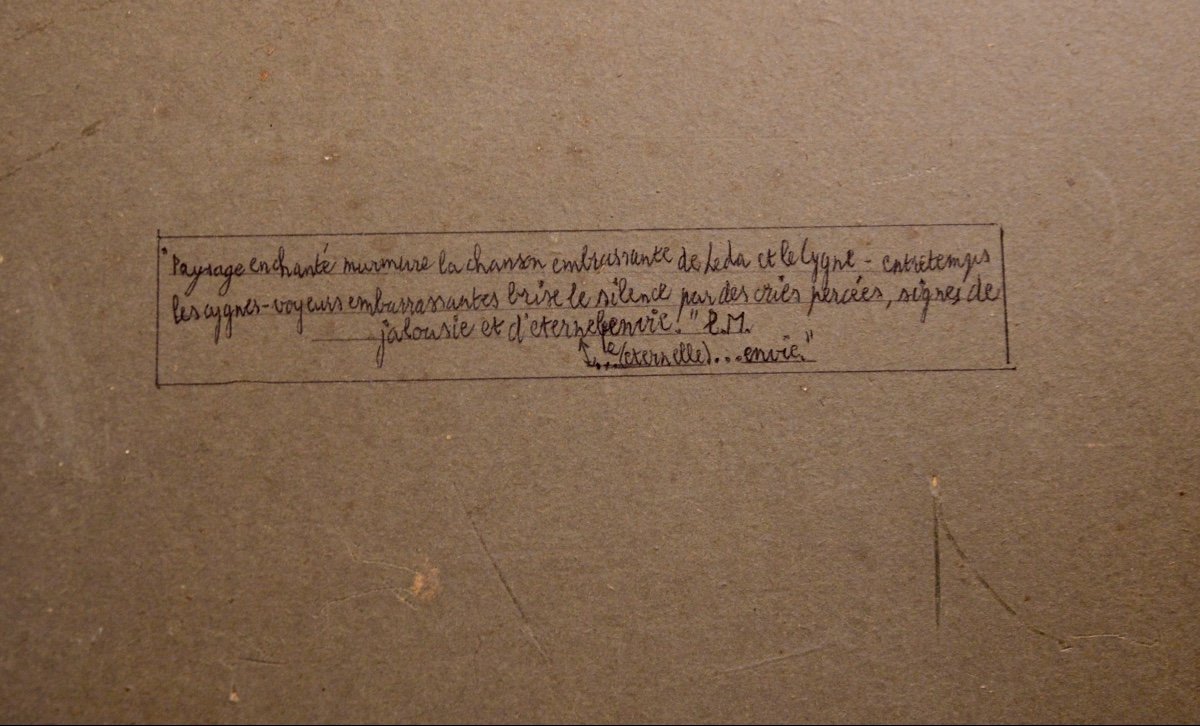 "Paysage enchanté murmure la chanson embrassante de Leda et le Cygne - entretemps
les cygnes-voyeurs embarrassantes brise le silence par des cries percées, signes de
jalousie et d'eternel envie!" L.M.
...e (eternelle)...envie."